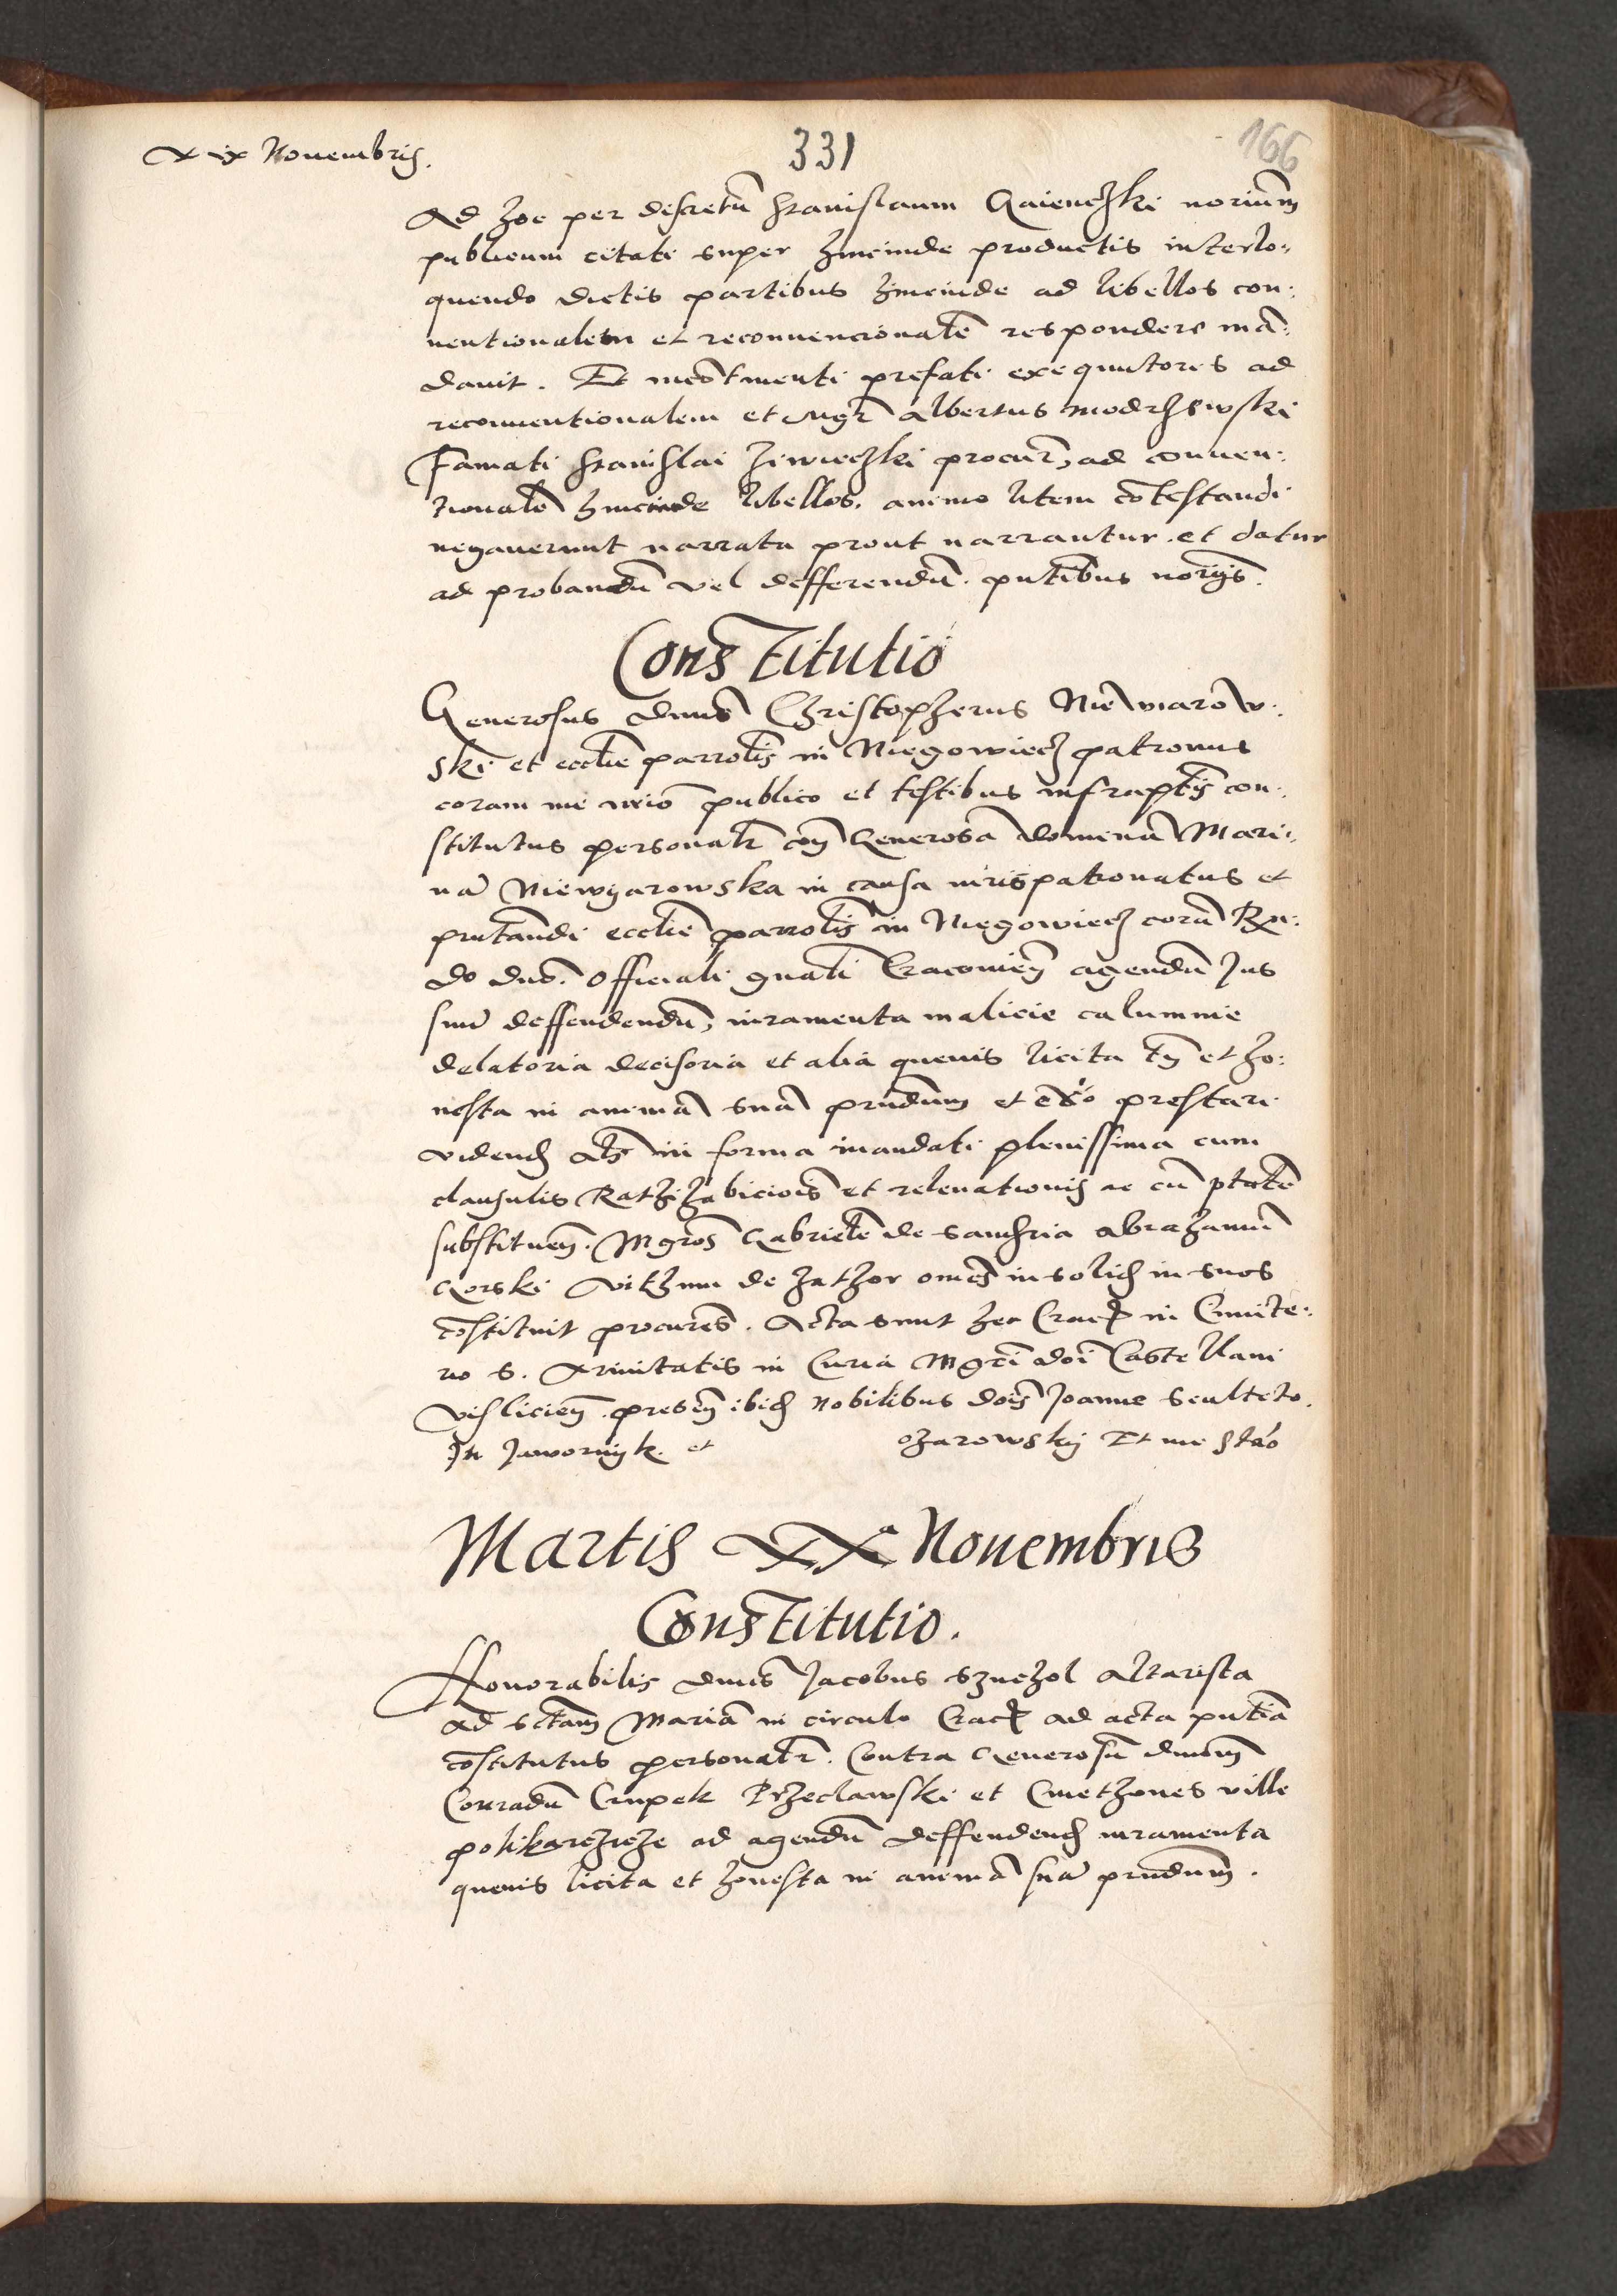 xix Nouembris.
331
166
Ad hoc per discretū Stanislaum Gaienczki noriūm
publicum citati super hincinde productis interlo:
quendo dictis partibus hincinde ad libellos con:
uentionalem et reconuencionalē respondere mā:
dauit. Et incōtinenti prefati exequutores ad
reconuentionalem et Mgr̄ Albertus modrzewski
Famati Stanislai ziwieczki procur̄, ad conuen:
tionalē hincinde libellos. animo litem cōtestandi
negauerunt narrata prout narrantur. et datur
ad probandū vel defferendū. pntībus norijs.
Constitutio
Generosus dnus Christopherus Niewiarow:
ski et eccłie parrołis in Niegowiecz patronus
coram me nrio publico et testibus infraptis con:
stitutus personałr cōn Generosā dominā Mari:
nā Niewyarowska in causa iurispatronatus et
pntandi eccłie parrołis in Niegowiecz corā Rn:
do dno. officiali gnali Cracouieñ agendū Jus
suū deffendendū, iuramenta malicie calumnie
delatoria decisoria et alia queuis licita tñ et ho:
nesta in animā suā prndum et prestari
videnđ in forma mandati plenissima cum
clausulis Rathihabicionis et releuationis ac cū ptatē
substitueñ. Mgros Gabrielē de Abrahamū
Gorski vithum de zathor omēs in soliđ in suos
cōstituit procures. Acta sunt hec Crac in Cimite:
rio S. trinitatis in Curia Mgci doī Castellani
vislicieñ. preseñ ibiđ Nobilibus dois Joanne Sculteto.
In Jawornyk. et ozarowsky Et me
Martis XXa Nouembris
Constitutio.
Honorabilis dnus Jacobus Altarista
ad sctam Mariā in circulo Crac ad acta pntiā
cōstitutus personałr. Contra Generosū dnum
Conradū Crupek Przeclawski et Cmethones ville
polikarczicze ad agendū deffendenđ iuramenta
queuis licita et honesta in animā suā prndum.